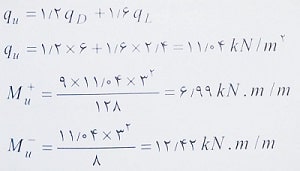 q_u = ۱/۲ q_D + ۱/۶ q_L
q_u = ۱/۲ × ۶ + ۱/۶ × ۲/۴ = ۱۱/۰۴ kN/m^۲
M_u^+ = (۹ × ۱۱/۰۴ × ۳^۲) / ۱۲۸ = ۶/۹۹ kN.m/m
M_u^- = (۱۱/۰۴ × ۳^۲) / ۸ = ۱۲/۴۲ kN.m/m